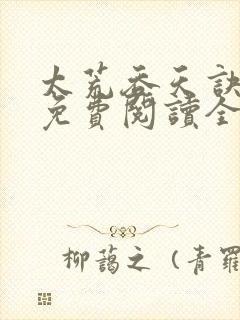 大荒吞天訣
免費閱讀全
柳藹之（青羅